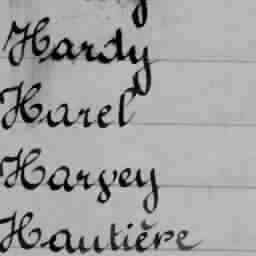 Hardy
Harel
Harvey
Hautière